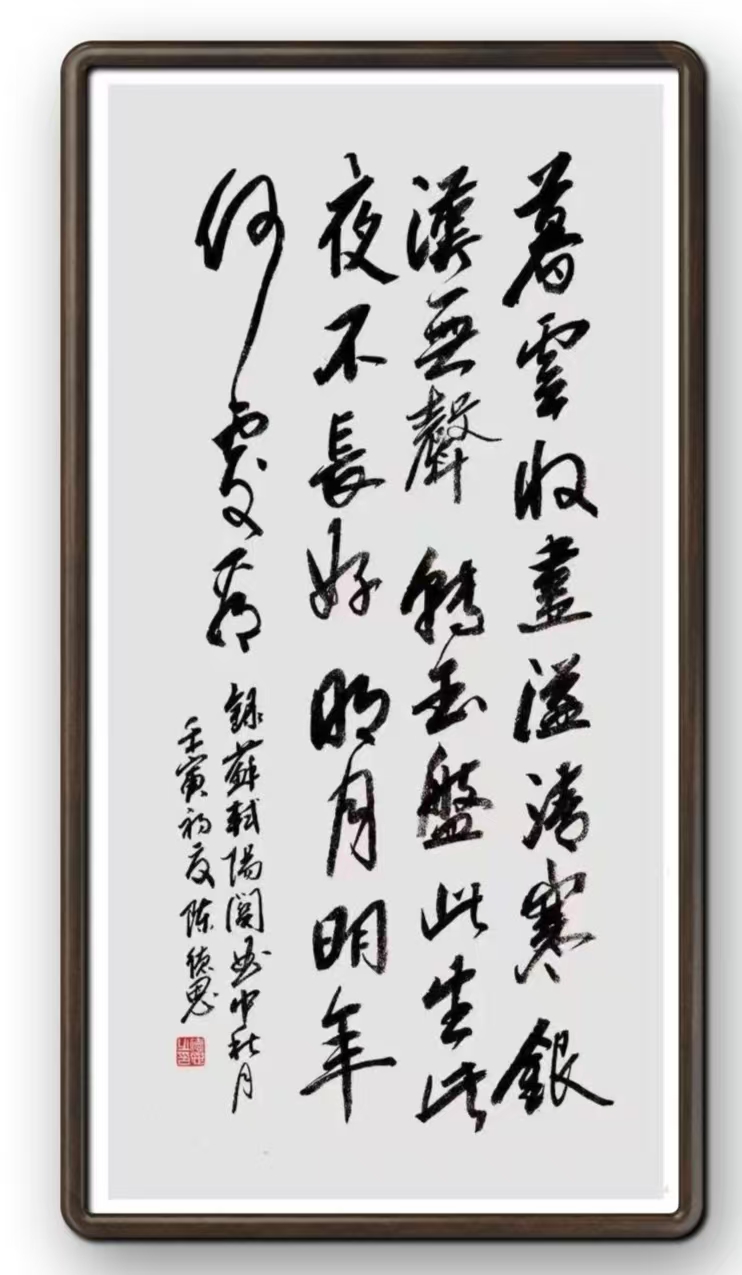 暮雲收盡溢清寒銀
漢無聲轉玉盤此生此
夜不長好明月明年
何處看
録蘇軾陽關曲中秋月
壬寅初夏陳德思